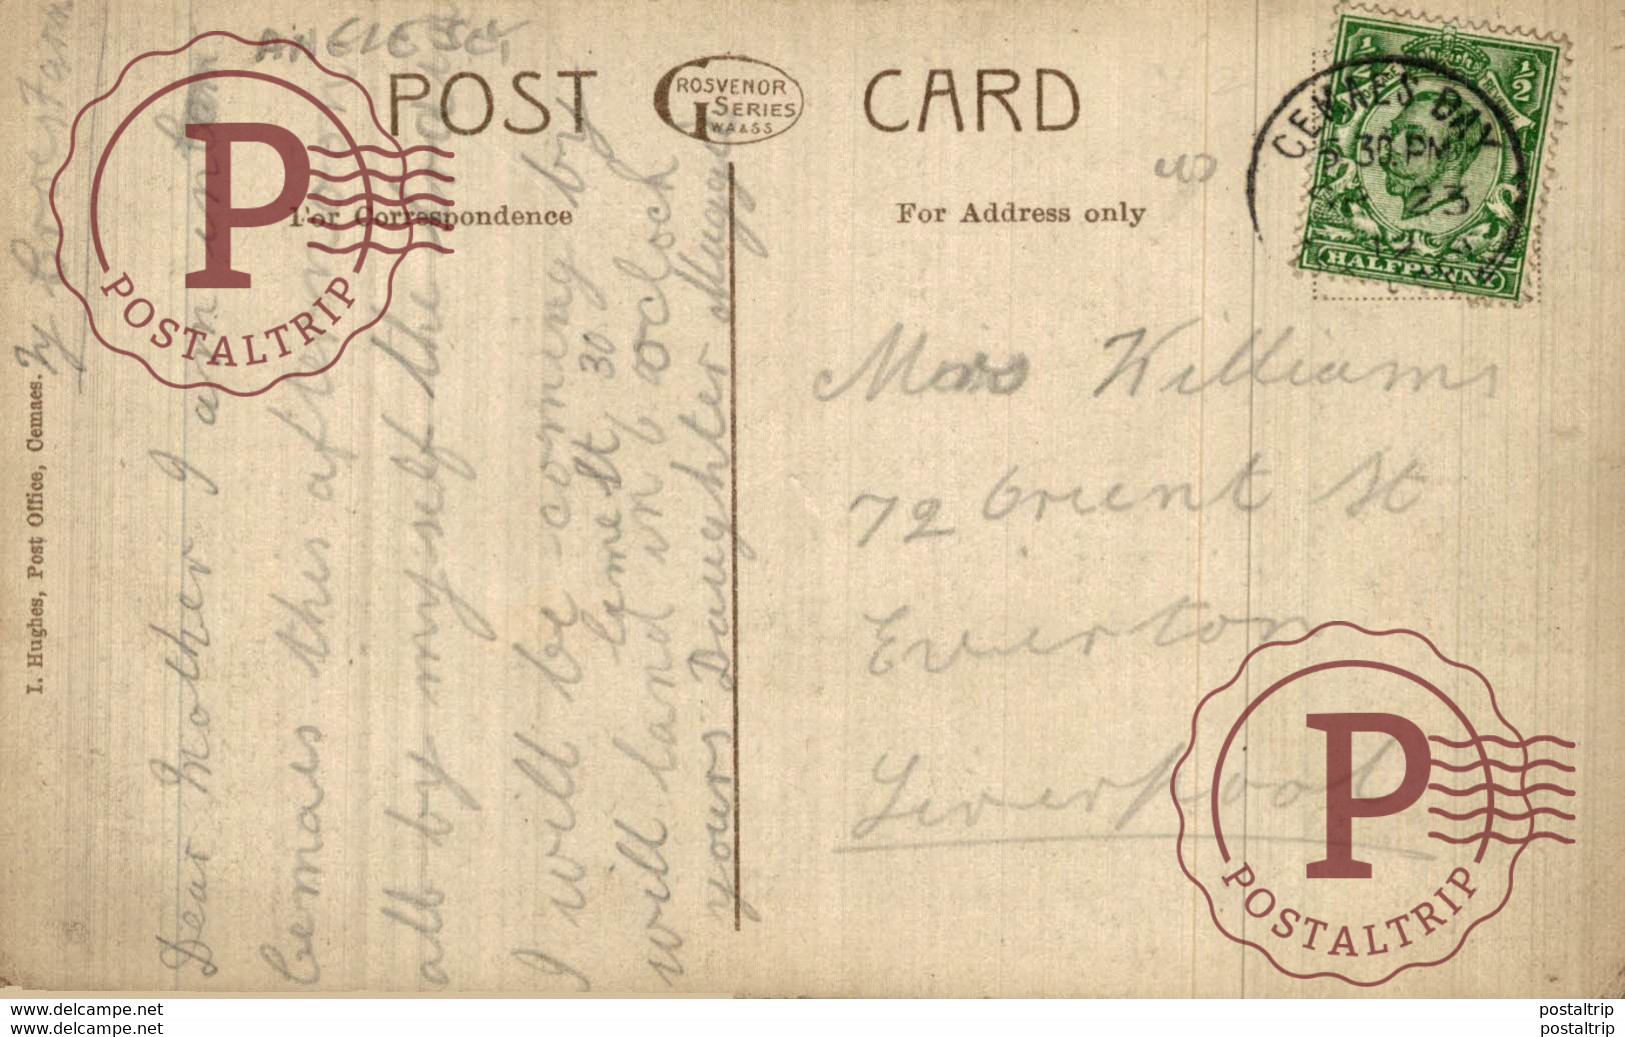 ANGLESEY
POST CARD
GROSVENOR
SERIES
W A & S S
For Correspondence
For Address only
CEMAES BAY
30 PM
23
12
HALFPENNY
½ ½
I. Hughes, Post Office, Cemaes.
Ty
Dear Mother I am in
Cemaes this afternoon
all by myself the
I will be coming by
6 meSt 30
will land in 6 oclock
yours Daughter Maggie
Miss Williams
72 Orient St
Everton
Liverpool
P
POSTALTRIP
P
POSTALTRIP
www.delcampe.net postaltrip
www.delcampe.net postaltrip